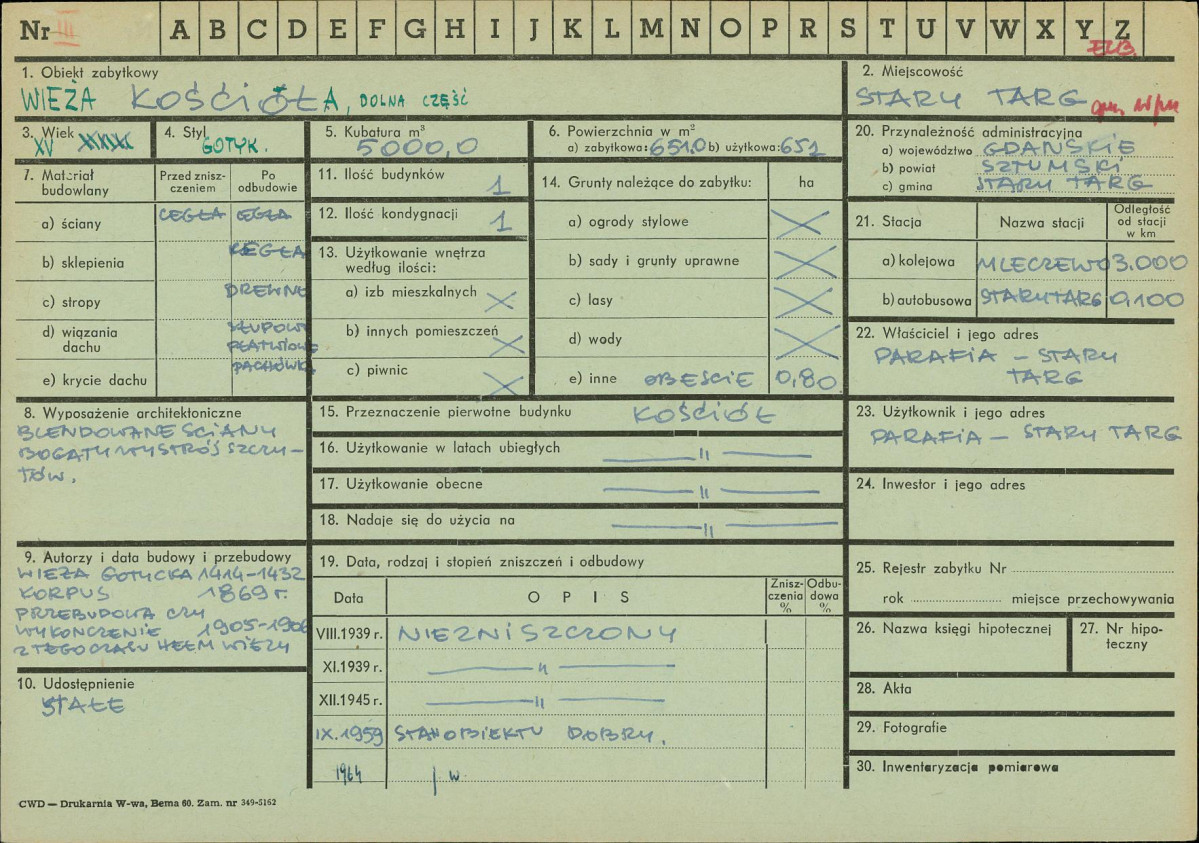 Nr III A B C D E F G H I J K L M N O P R S T U V W X Y Z
ELB.
1. Obiekt zabytkowy
WIEŻA KOŚCIÓŁA, DOLNA CZĘŚĆ
2. Miejscowość
STARY TARG
3. Wiek
XV
4. Styl
GOTYK.
5. Kubatura m³
5000,0
6. Powierzchnia w m²
a) zabytkowa: 651.0 b) użytkowa: 651
20. Przynależność administracyjna
a) województwo GDAŃSKIE
b) powiat SZTUMSKI
c) gmina STARY TARG
7. Materiał budowlany
Przed zniszczeniem
Po odbudowie
a) ściany CEGŁA CEGŁA
b) sklepienia CEGŁA
c) stropy DREWNE
d) wiązania dachu SŁUPOWO PŁATWIOWE
e) krycie dachu DACHÓWKA
11. Ilość budynków 1
12. Ilość kondygnacji 1
13. Użytkowanie wnętrza
według ilości:
a) izb mieszkalnych
b) innych pomieszczeń
c) piwnic
14. Grunty należące do zabytku: ha
a) ogrody stylowe
b) sady i grunty uprawne
c) lasy
d) wody
e) inne OBEJŚCIE 0,80
21. Stacja Nazwa stacji Odległość od stacji w km
a) kolejowa MLECZEWO 3.000
b) autobusowa STARY TARG 0,100
22. Właściciel i jego adres
PARAFIA – STARY
TARG
8. Wyposażenie architektoniczne
BLENDOWANE ŚCIANY
BOGATY WYSTRÓJ SZCZY-
TÓW.
15. Przeznaczenie pierwotne budynku KOŚCIÓŁ
16. Użytkowanie w latach ubiegłych — " —
17. Użytkowanie obecne — " —
18. Nadaje się do użycia na — " —
23. Użytkownik i jego adres
PARAFIA – STARY TARG
24. Inwestor i jego adres
9. Autorzy i data budowy i przebudowy
WIEŻA GOTYCKA 1414-1432
KORPUS 1869 r.
PRZEBUDOWA CZY
WYKOŃCZENIE 1905-1906
Z TEGO CZASU HEŁM WIEŻY
10. Udostępnienie
STAŁE
19. Data, rodzaj i stopień zniszczeń i odbudowy
Data OPIS Zniszczenia % Odbudowa %
VIII.1939 r. NIEZNISZCZONY
XI.1939 r. — " —
XII.1945 r. — " —
IX.1959 STAN OBIEKTU DOBRY.
1964 j w
25. Rejestr zabytku Nr
rok miejsce przechowywania
26. Nazwa księgi hipotecznej
27. Nr hipoteczny
28. Akta
29. Fotografie
30. Inwentaryzacja pomiarowa
CWD — Drukarnia W-wa, Bema 60. Zam. nr 349-5162